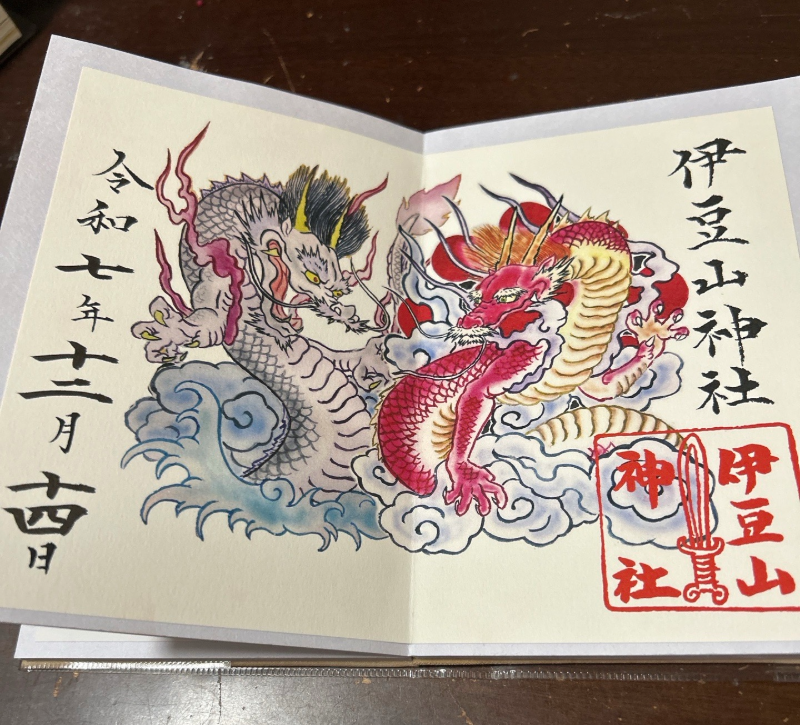 伊豆山神社
伊豆山
神社
令和七年十二月十四日